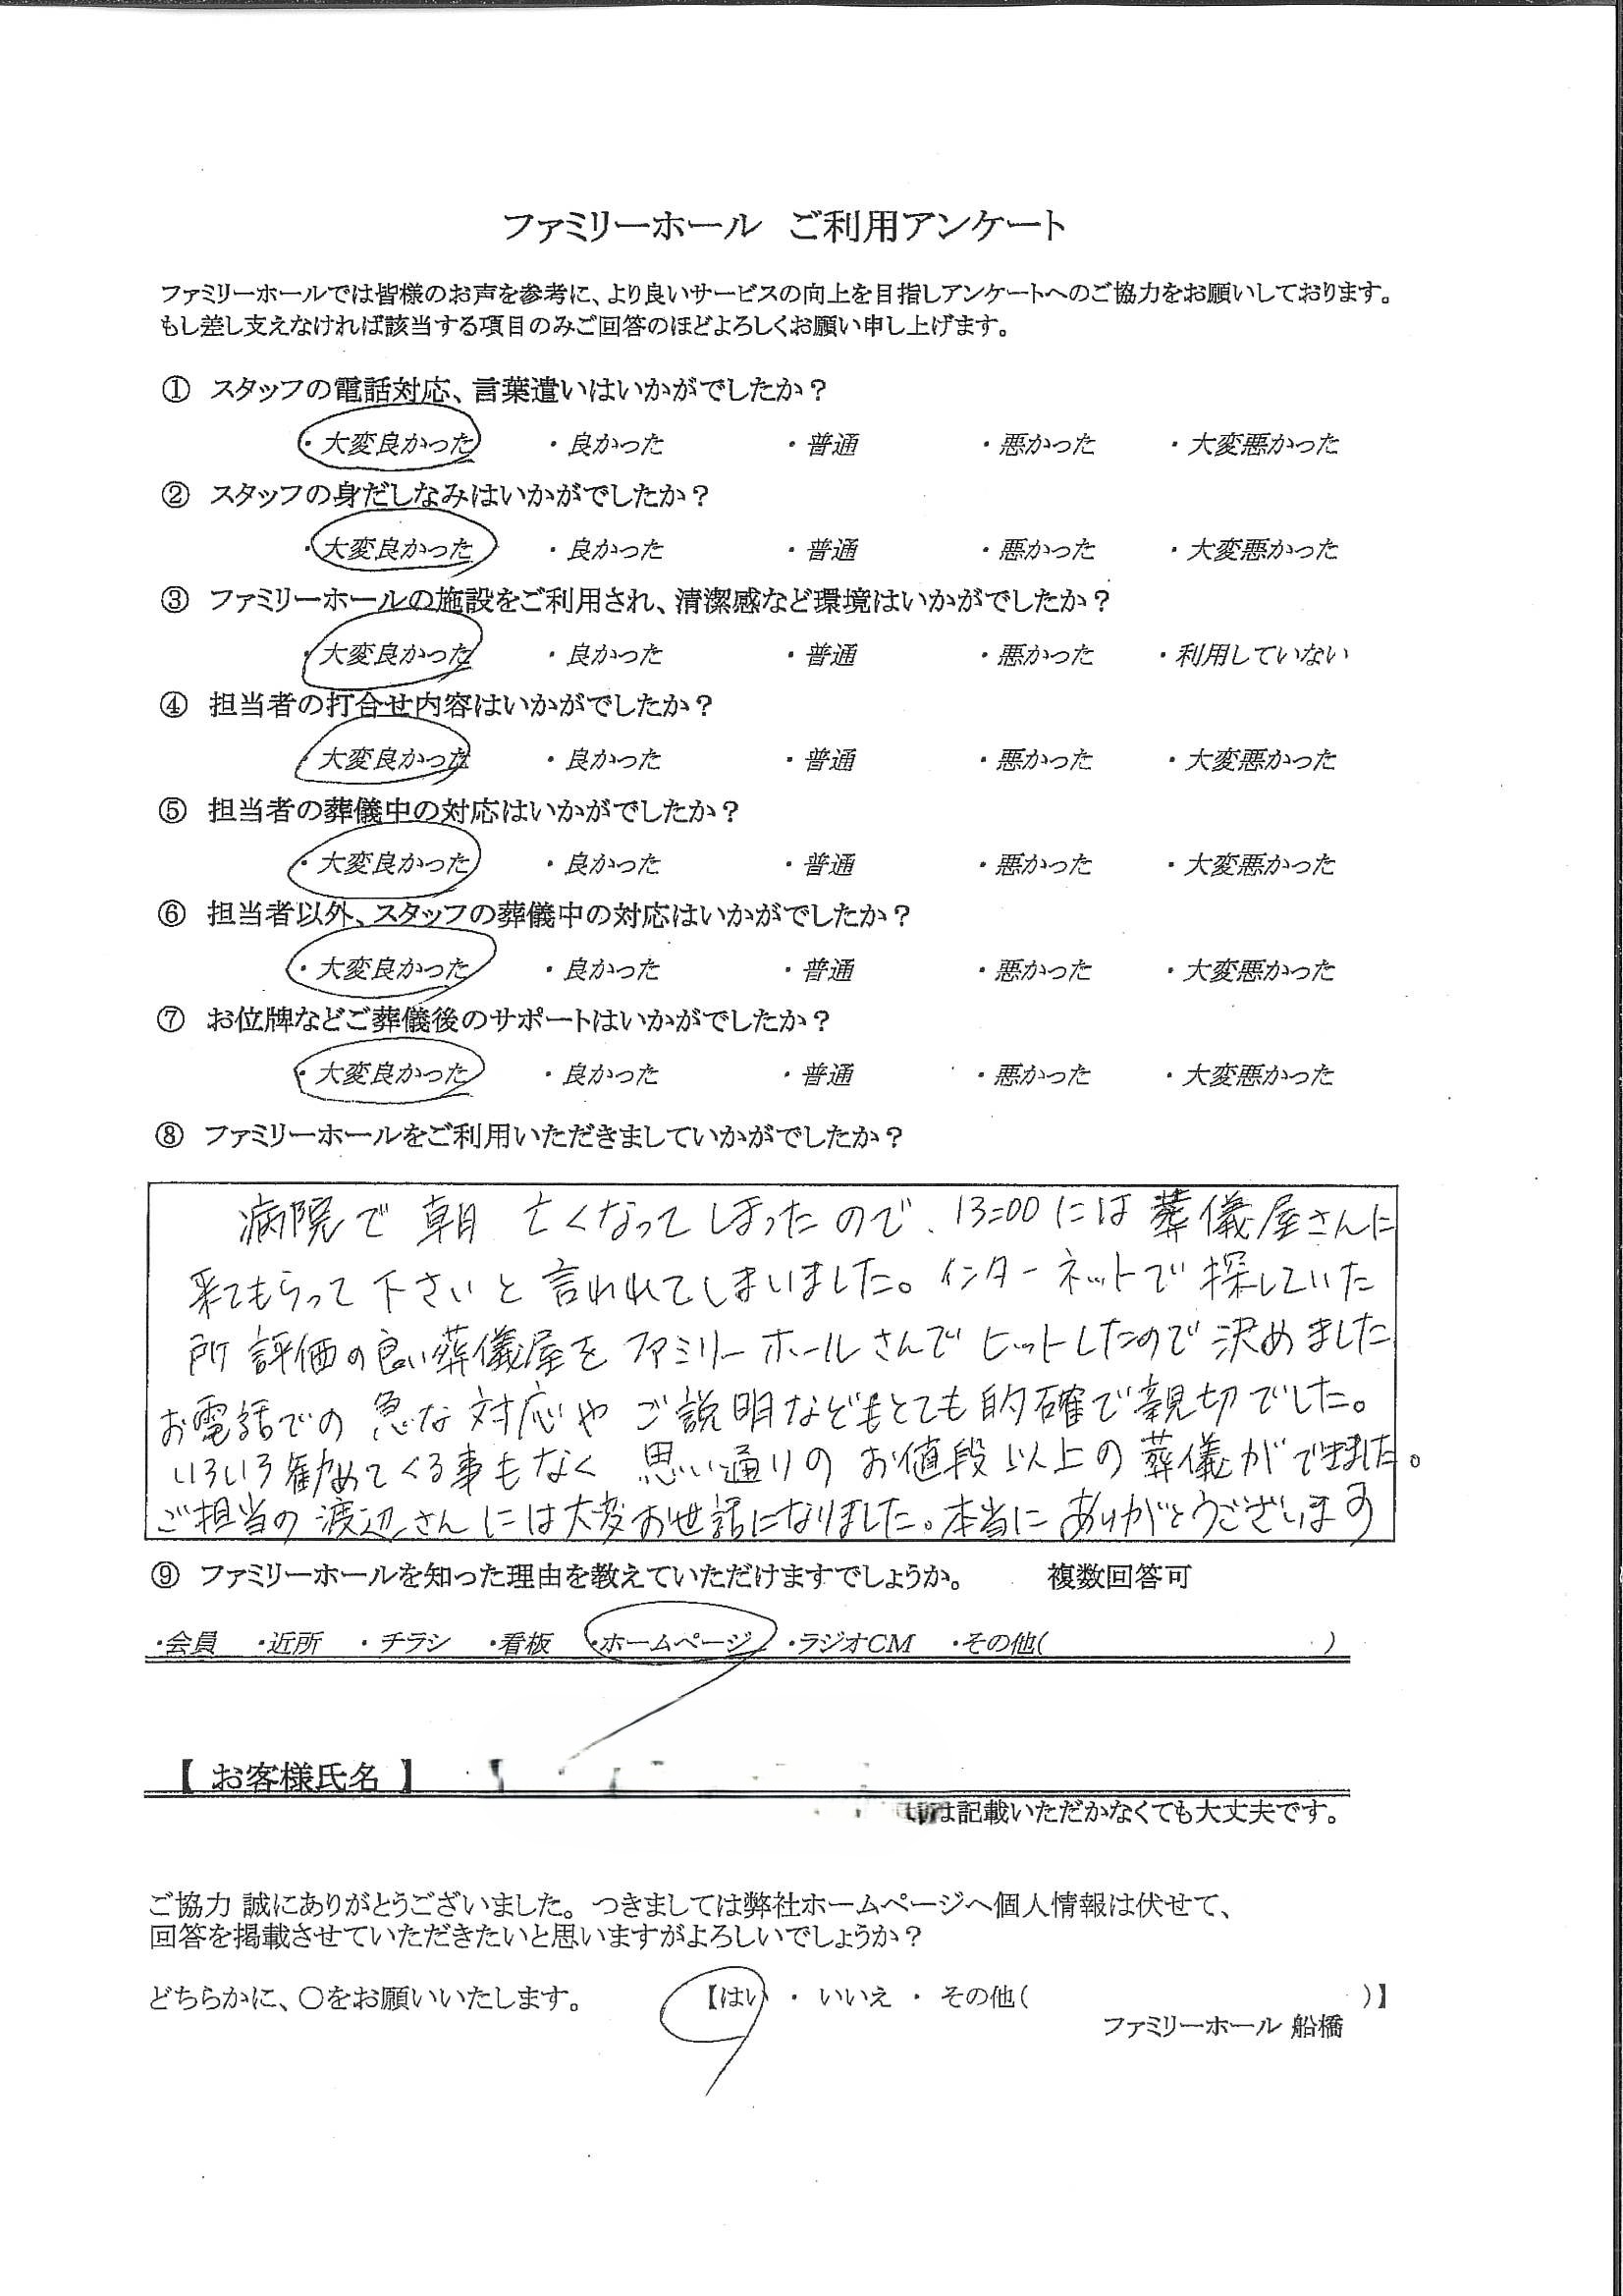 ファミリーホール ご利用アンケート
ファミリーホールでは皆様のお声を参考に、より良いサービスの向上を目指しアンケートへのご協力をお願いしております。
もし差し支えなければ該当する項目のみご回答のほどよろしくお願い申し上げます。
① スタッフの電話対応、言葉遣いはいかがでしたか？
・大変良かった ・良かった ・普通 ・悪かった ・大変悪かった
② スタッフの身だしなみはいかがでしたか？
・大変良かった ・良かった ・普通 ・悪かった ・大変悪かった
③ ファミリーホールの施設をご利用され、清潔感など環境はいかがでしたか？
・大変良かった ・良かった ・普通 ・悪かった ・利用していない
④ 担当者の打合せ内容はいかがでしたか？
・大変良かった ・良かった ・普通 ・悪かった ・大変悪かった
⑤ 担当者の葬儀中の対応はいかがでしたか？
・大変良かった ・良かった ・普通 ・悪かった ・大変悪かった
⑥ 担当者以外、スタッフの葬儀中の対応はいかがでしたか？
・大変良かった ・良かった ・普通 ・悪かった ・大変悪かった
⑦ お位牌などご葬儀後のサポートはいかがでしたか？
・大変良かった ・良かった ・普通 ・悪かった ・大変悪かった
⑧ ファミリーホールをご利用いただきましていかがでしたか？
病院で朝 亡くなってしまったので、13:00には葬儀屋さんに
来てもらって下さいと言われてしまいました。インターネットで探していた
所評価の良い葬儀屋をファミリーホールさんでヒットしたので決めました
お電話での急な対応やご説明などもとても的確で親切でした。
いろいろ勧めてくる事もなく 思い通りの お値段以上の葬儀ができました。
ご担当の渡辺さんには大変お世話になりました。本当にありがとうございます
⑨ ファミリーホールを知った理由を教えていただけますでしょうか。 複数回答可
・会員 ・近所 ・チラシ ・看板 ・ホームページ ・ラジオCM ・その他( )
【 お客様氏名 】
は記載いただかなくても大丈夫です。
ご協力 誠にありがとうございました。つきましては弊社ホームページへ個人情報は伏せて、
回答を掲載させていただきたいと思いますがよろしいでしょうか？
どちらかに、〇をお願いいたします。 【はい ・ いいえ ・ その他( )】
ファミリーホール 船橋